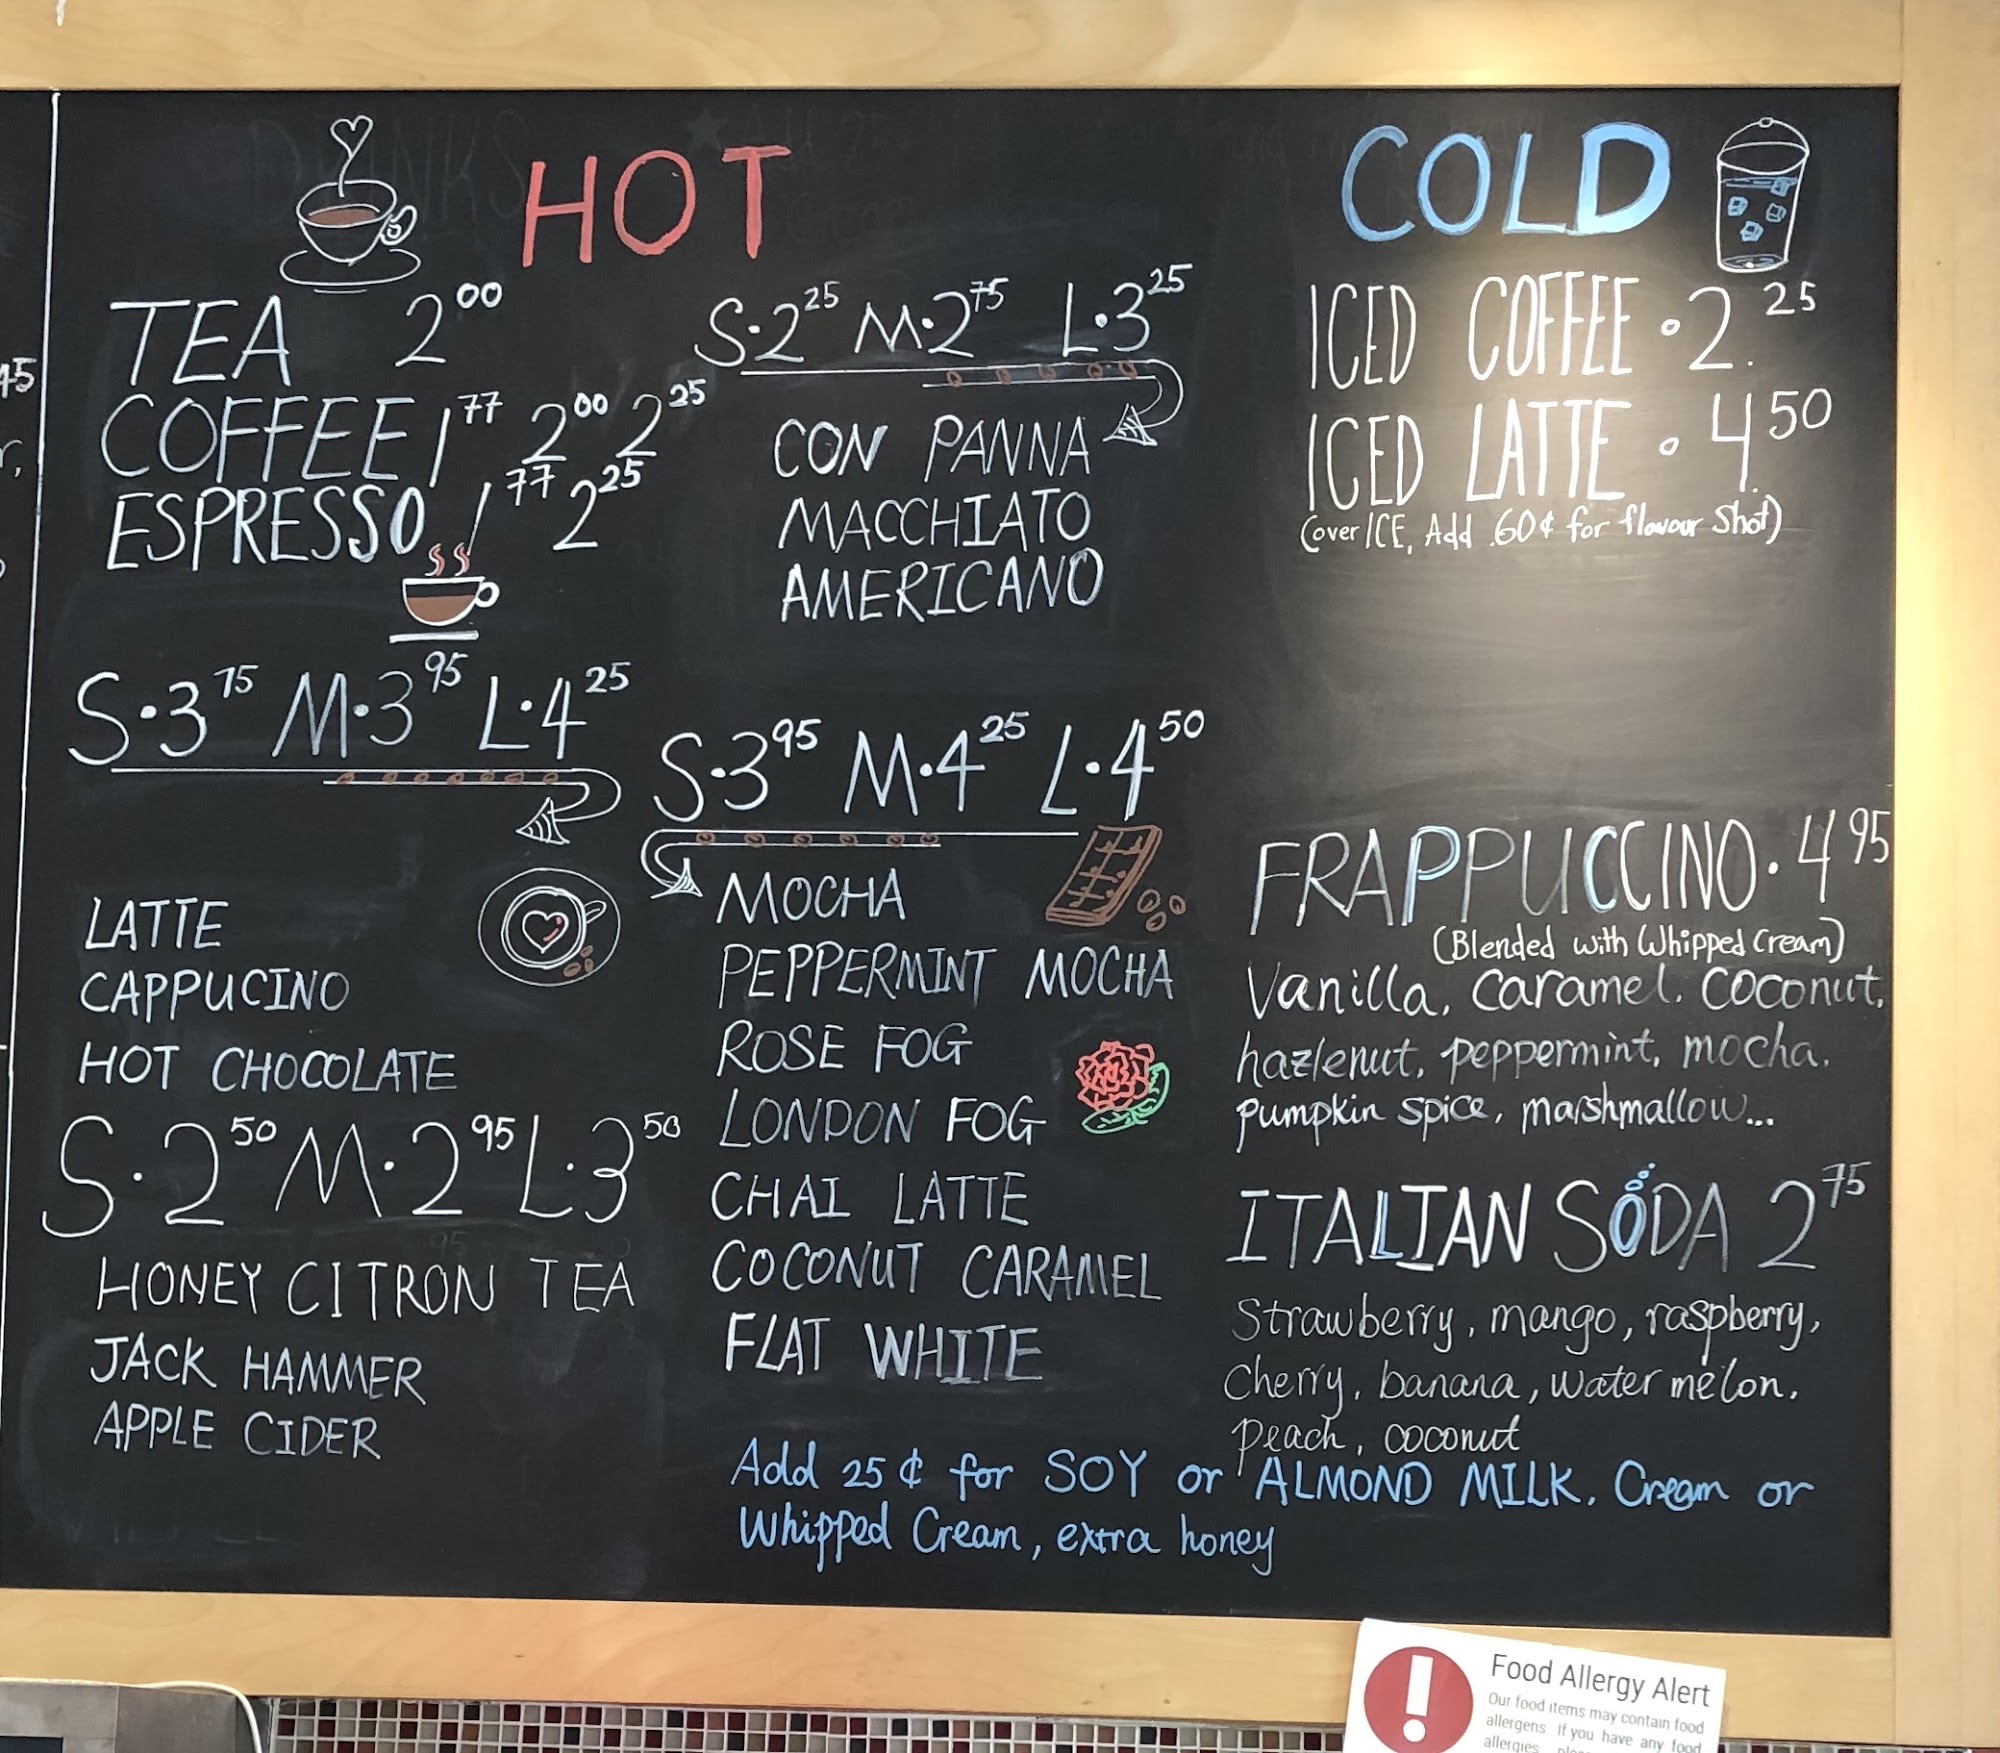 HOT
TEA 2.00
COFFEE 1.77 2.00 2.25
ESPRESSO 1.77 2.25
S·3.75 M·3.95 L·4.25
LATTE
CAPPUCINO
HOT CHOCOLATE
S·2.50 M·2.95 L·3.50
HONEY CITRON TEA
JACK HAMMER
APPLE CIDER
S·2.25 M·2.75 L·3.25
CON PANNA
MACCHIATO
AMERICANO
S·3.95 M·4.25 L·4.50
MOCHA
PEPPERMINT MOCHA
ROSE FOG
LONDON FOG
CHAI LATTE
COCONUT CARAMEL
FLAT WHITE
COLD
ICED COFFEE · 2.25
ICED LATTE · 4.50
(over ICE, Add .60¢ for flavour shot)
FRAPPUCCINO · 4.95
(Blended with Whipped Cream)
Vanilla, caramel, coconut,
hazlenut, peppermint, mocha,
pumpkin spice, marshmallow...
ITALIAN SODA 2.75
Strawberry, mango, raspberry,
Cherry, banana, water melon,
peach, coconut
Add 25¢ for SOY or ALMOND MILK, Cream or
Whipped Cream, extra honey
Food Allergy Alert
Our food items may contain food
allergens. If you have any food
allergies